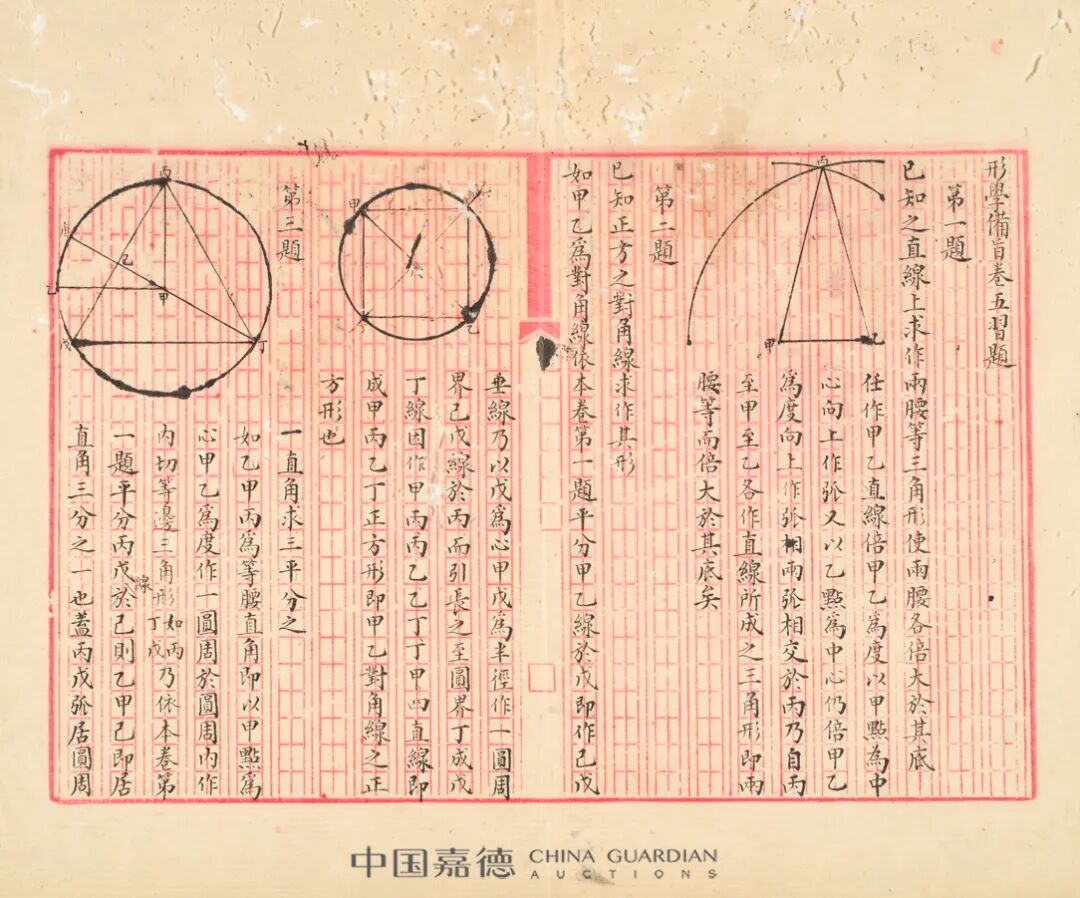 形學備旨卷五習題
第一題
已知之直線上求作兩腰等三角形使兩腰各倍大於其底
任作甲乙直線倍甲乙為度以甲點為中
心向上作弧又以乙點為中心仍倍甲乙
為度向上作弧相兩弧相交於丙乃自丙
至甲至乙各作直線所成之三角形即兩
腰等而倍大於其底矣
丙
甲
乙
第二題
已知正方之對角線求作其形
如甲乙為對角線依本卷第一題平分甲乙線於戊即作己戊
垂線乃以戊為心甲戊為半徑作一圓周
界己戊線於丙而引長之至圓界丁成戊
丁線因作甲丙丙乙乙丁丁甲四直線即
成甲丙乙丁正方形即甲乙對角線之正
方形也
甲
乙
第三題
一直角求三平分之
如乙甲丙為等腰直角即以甲點為
心甲乙為度作一圓周於圓周内作
内切等邊三角形如丙丁戊線乃依本卷第
一題平分丙戊於己則乙甲己即居
直角三分之一也蓋丙戊弧居圓周
丙
乙
甲
乙
戊
丁
中国嘉德 CHINA GUARDIAN
AUCTIONS